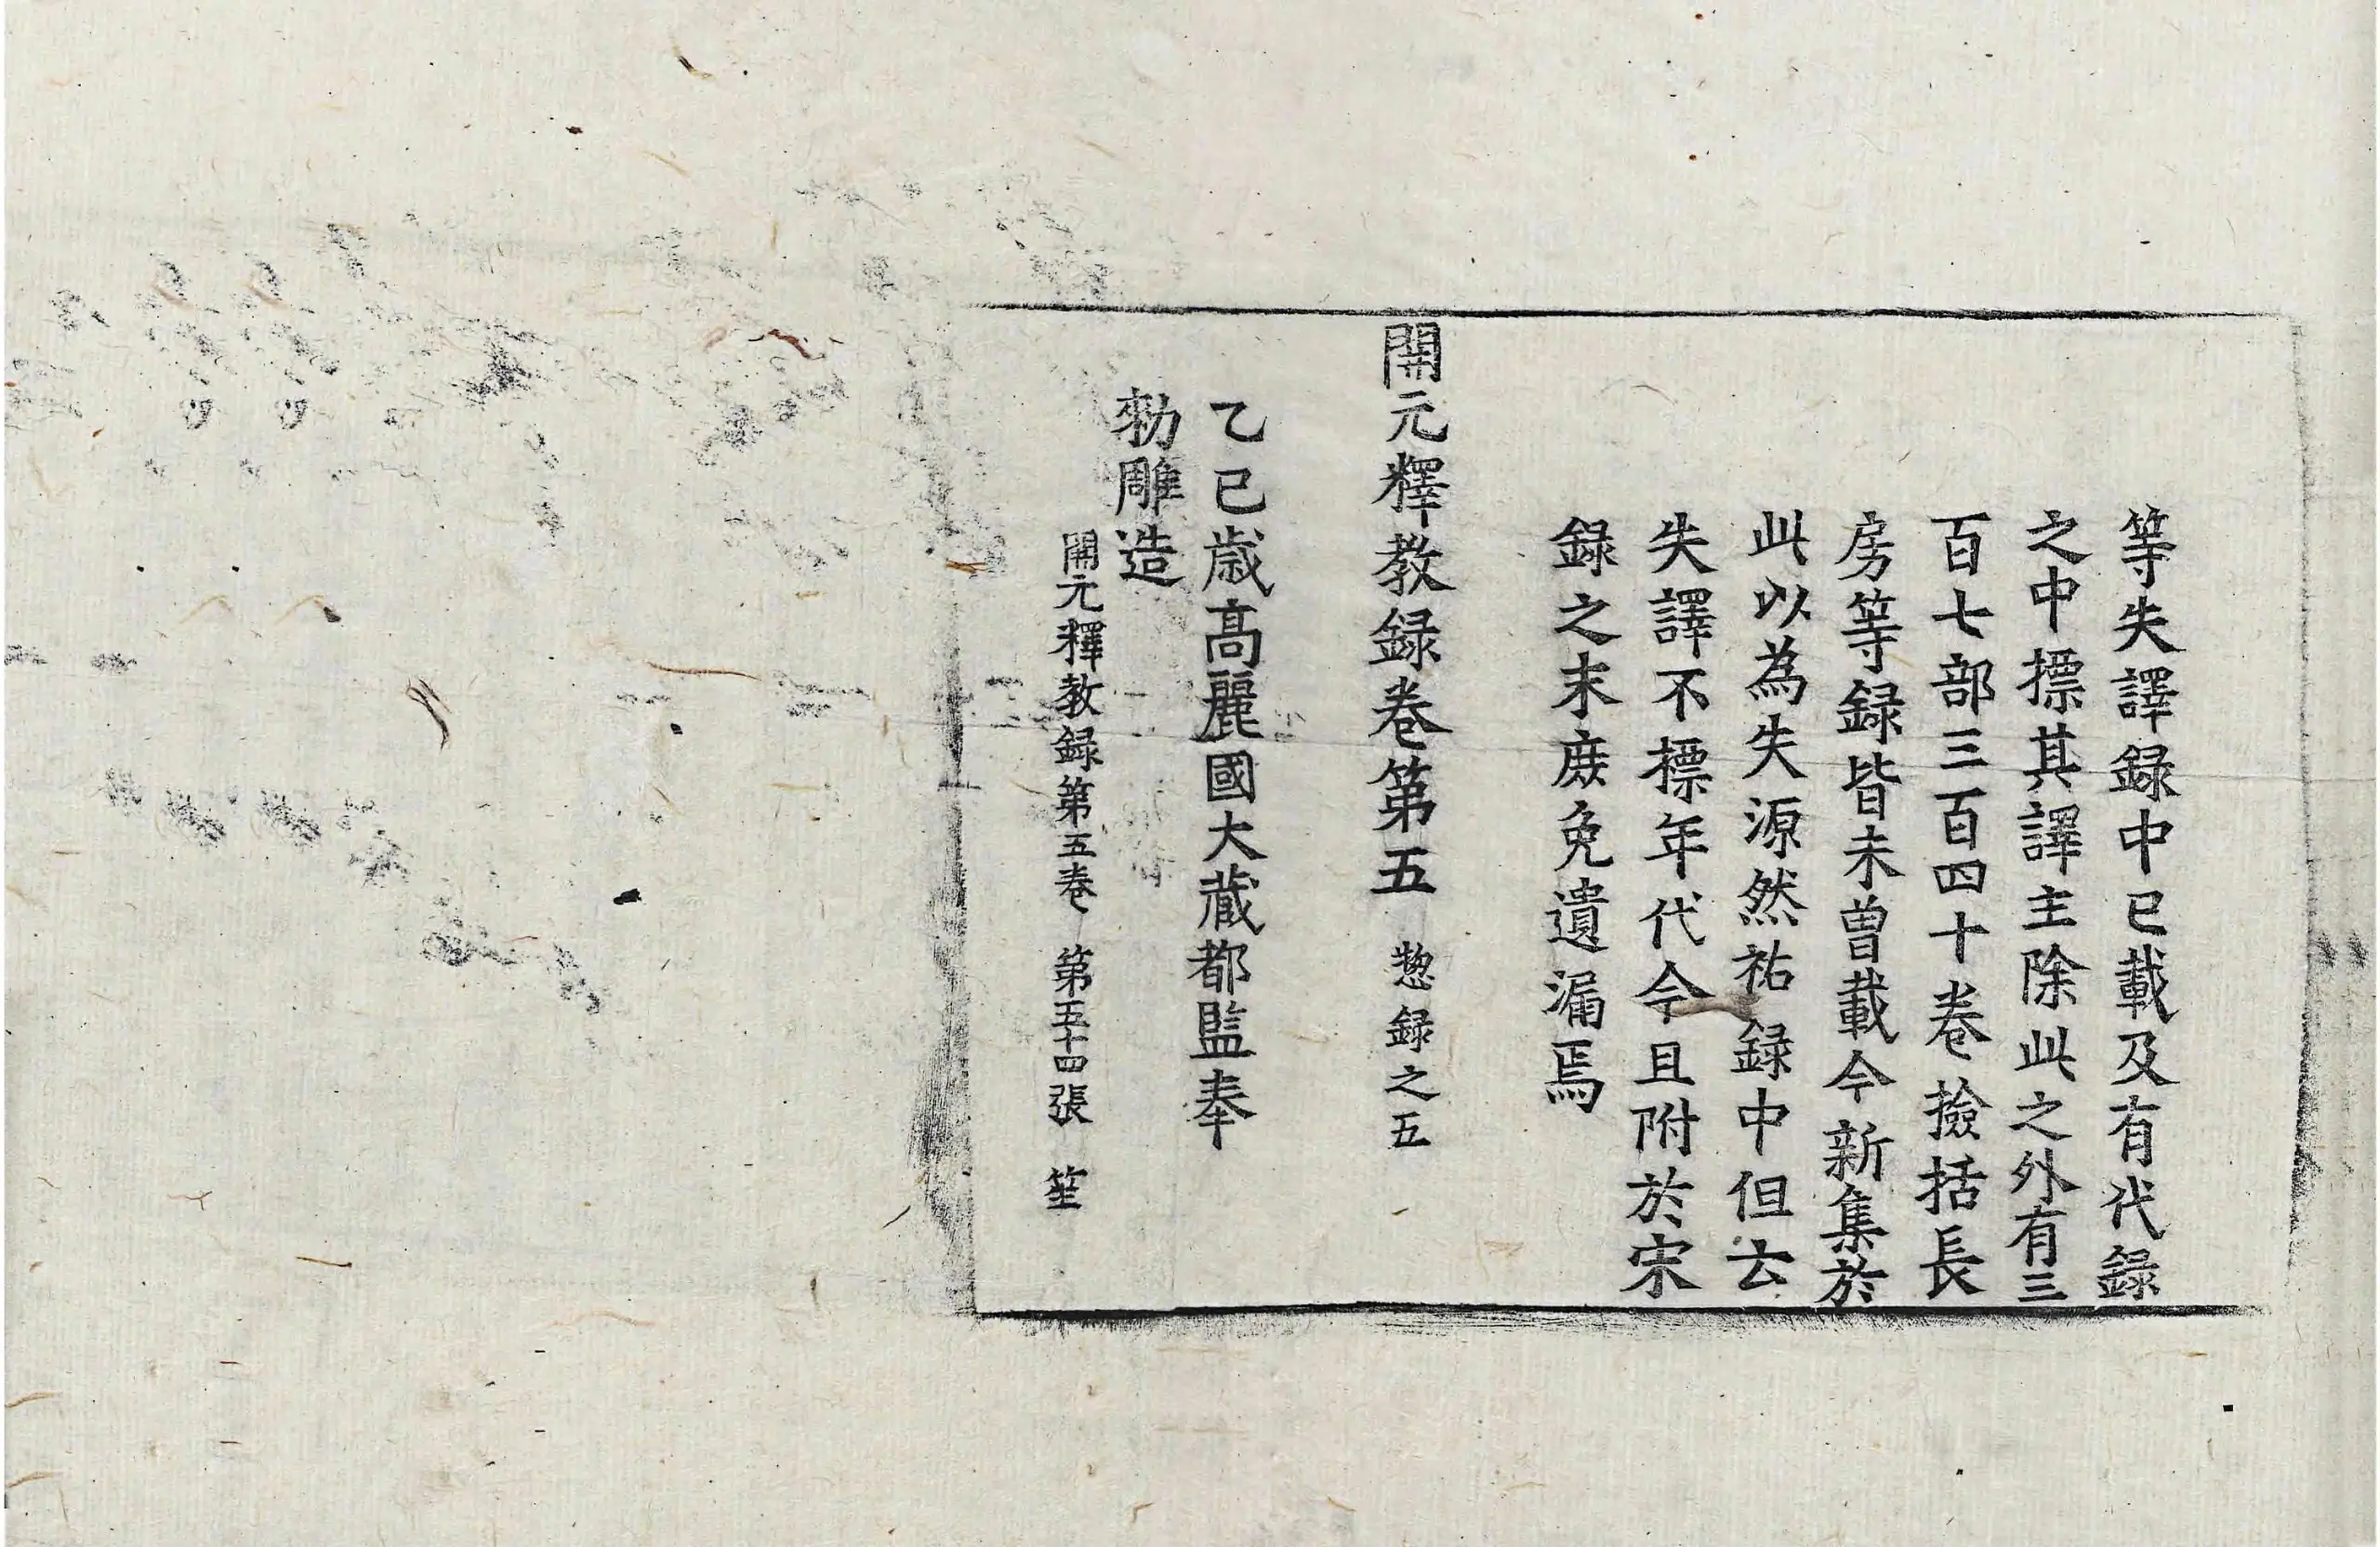 等失譯録中已載及有代録
之中摽其譯主除此之外有三
百七部三百四十卷撿括長
房等録皆未曾載今新集於
此以為失源然祐録中但云
失譯不摽年代今且附於宋
録之末庻免遺漏焉
開元釋教録卷第五 揔録之五
乙巳歳高麗國大藏都監奉
勑雕造
開元釋教録第五卷 第五十四張 笙